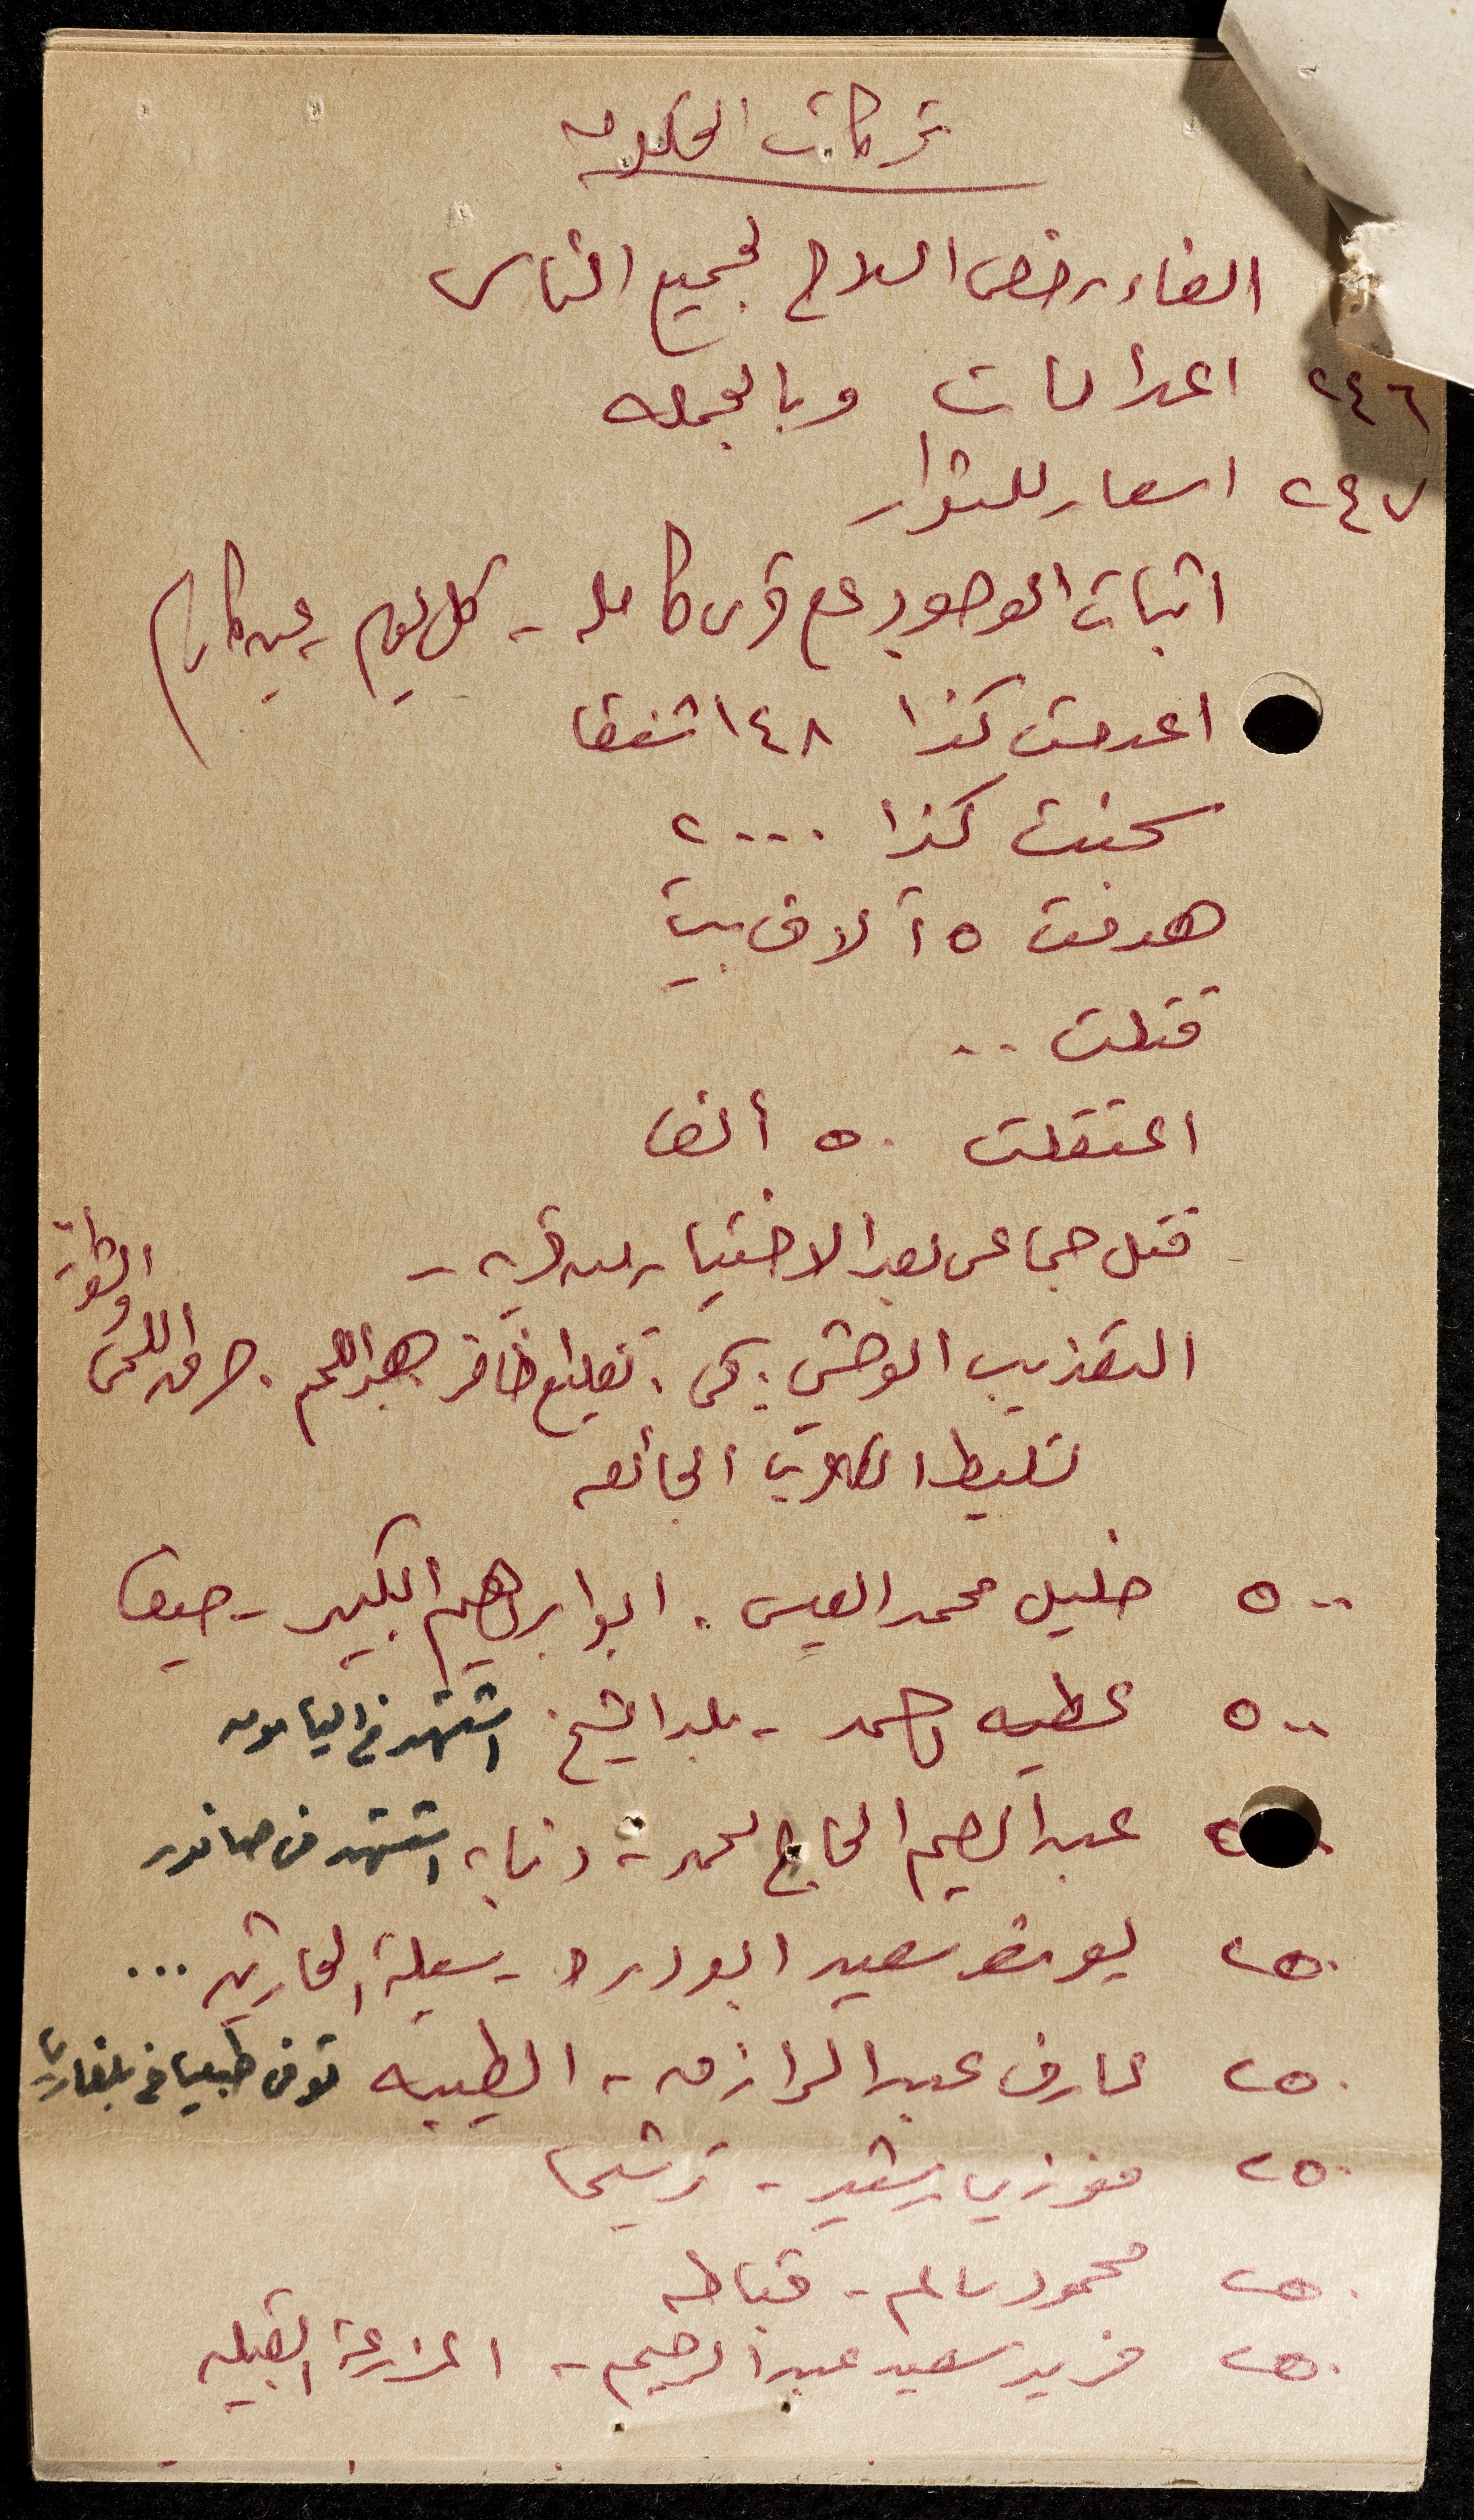 تحركات الحكومه
الغاء رخص السلاح لجميع الناس
٢٤٦ اعدامات وبالجمله
٢٤٧ اسعار للثوار
اثبات الوجود على قرى كامله - كل يوم
اعدمت كذا ١٤٨ شنقا
سجنت كذا ٢٠٠٠
هدمت ٥ آلاف بيت
قتلت ..
اعتقلت ٥٠ ألفا
قتل جماعي بعد الاختيار من قريه -
التعذيب الوحشي : كي . تقليع اظافر . حرق اللحى
والشوارب
تسليط الكلاب الجائعه
٥٠٠ خليل محمد العيسى . ابو ابراهيم الكبير - حيفا
٥٠٠ عطيه احمد - بلد الشيخ استشهد في اليامون
عبد الرحيم الحاج محمد - ذنابه استشهد في صانور
٢٥٠ يوسف سعيد ابو دره - سيلة الحارثيه ...
٢٥٠ عارف عبد الرازق - الطيبه توفي طبيعيا في بلغاريا
٢٥٠ فوزي رشيد - ترشيحا
٢٥٠ محمود سالم - قباطيه
٢٥٠ فريد سعيد عبد الرحيم - المزرعة القبليه